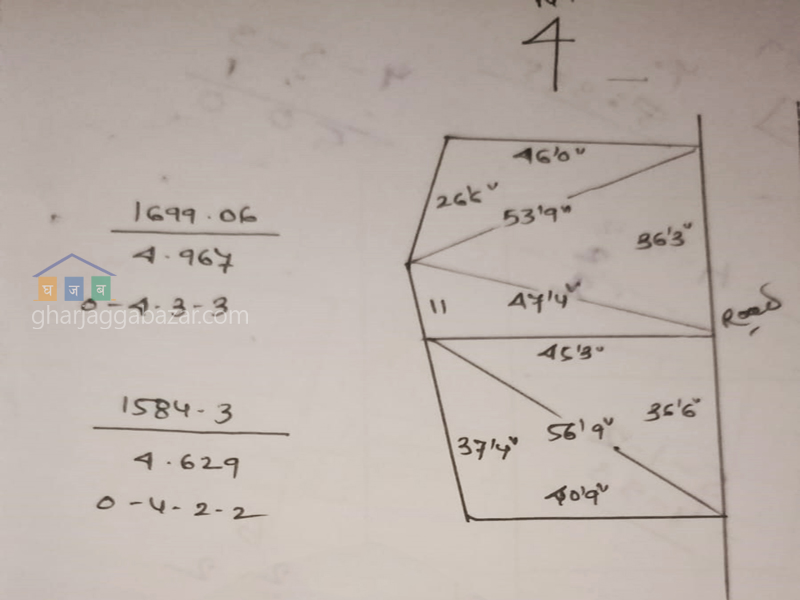 4
46'0"
26'6"
1699.06
53'9"
36'3"
4.967
घ ज ब
0-4-3-3
11
47'4"
Road
gharjaggabazar.com
45'3"
1584.3
36'6"
56'9"
37'4"
4.629
40'9"
0-4-2-2